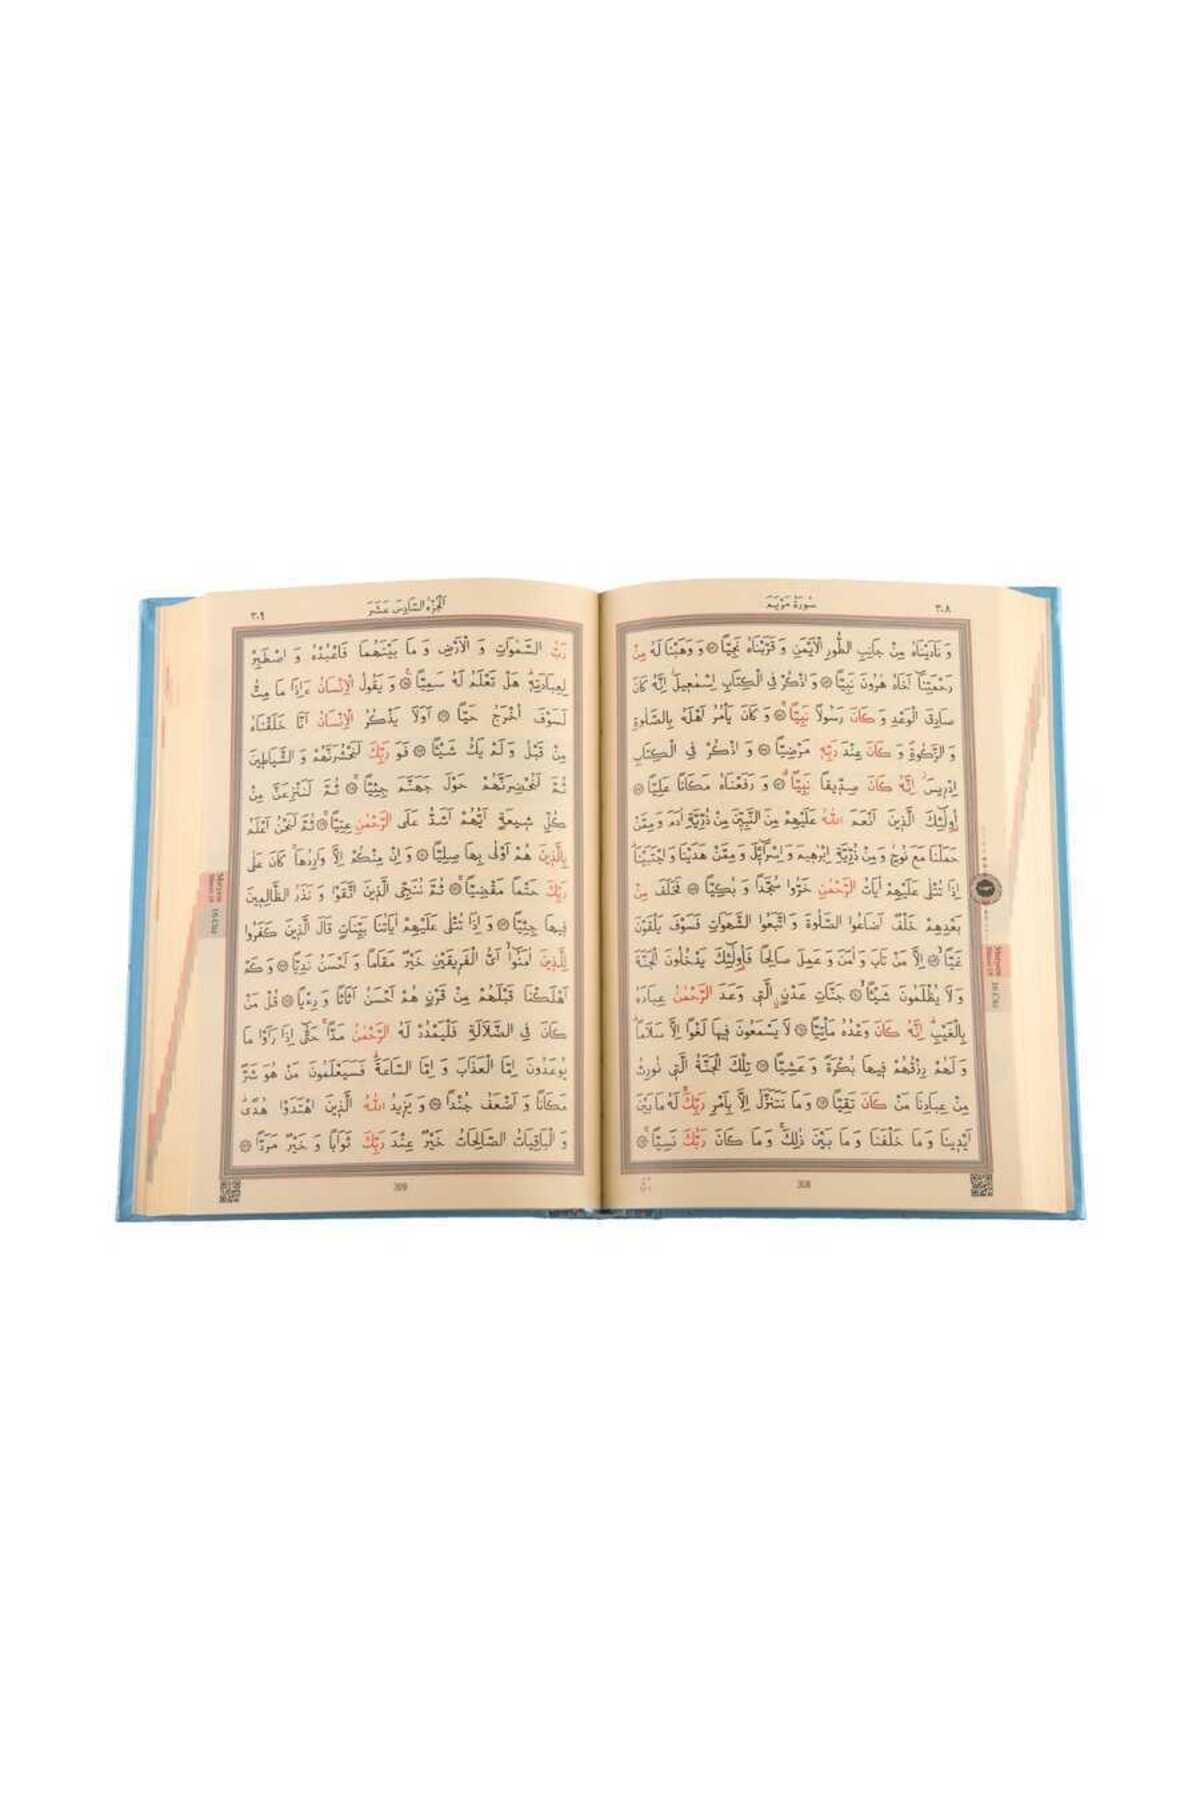 ٣٠٨
سُورَةُ مَرْيَمَ
وَنَادَيْنَاهُ مِنْ جَانِبِ الطُّورِ الْاَيْمَنِ وَقَرَّبْنَاهُ نَجِيًّا ﴿٥٢﴾ وَوَهَبْنَا لَهُ مِنْ
رَحْمَتِنَٓا اَخَاهُ هٰرُونَ نَبِيًّا ﴿٥٣﴾ وَاذْكُرْ فِي الْكِتَابِ اِسْمٰعٖيلَ اِنَّهُ كَانَ
صَادِقَ الْوَعْدِ وَكَانَ رَسُولًا نَبِيًّا ﴿٥٤﴾ وَكَانَ يَأْمُرُ اَهْلَهُ بِالصَّلٰوةِ
وَالزَّكٰوةِ وَكَانَ عِنْدَ رَبِّهٖ مَرْضِيًّا ﴿٥٥﴾ وَاذْكُرْ فِي الْكِتَابِ
اِدْرٖيسَ اِنَّهُ كَانَ صِدّٖيقًا نَبِيًّا ﴿٥٦﴾ وَرَفَعْنَاهُ مَكَانًا عَلِيًّا ﴿٥٧﴾
اُولٰٓئِكَ الَّذٖينَ اَنْعَمَ اللّٰهُ عَلَيْهِمْ مِنَ النَّبِيّٖنَ مِنْ ذُرِّيَّةِ اٰدَمَ وَمِمَّنْ
حَمَلْنَا مَعَ نُوحٍ وَمِنْ ذُرِّيَّةِ اِبْرٰهٖيمَ وَاِسْرَٓائٖلَ وَمِمَّنْ هَدَيْنَا وَاجْتَبَيْنَا
اِذَا تُتْلٰى عَلَيْهِمْ اٰيَاتُ الرَّحْمٰنِ خَرُّوا سُجَّدًا وَبُكِيًّا ﴿٥٨﴾ فَخَلَفَ مِنْ
بَعْدِهِمْ خَلْفٌ اَضَاعُوا الصَّلٰوةَ وَاتَّبَعُوا الشَّهَوَاتِ فَسَوْفَ يَلْقَوْنَ
غَيًّا ﴿٥٩﴾ اِلَّا مَنْ تَابَ وَاٰمَنَ وَعَمِلَ صَالِحًا فَاُولٰٓئِكَ يَدْخُلُونَ الْجَنَّةَ
وَلَا يُظْلَمُونَ شَيْئًا ﴿٦٠﴾ جَنَّاتِ عَدْنٍ الَّتٖي وَعَدَ الرَّحْمٰنُ عِبَادَهُ
بِالْغَيْبِ اِنَّهُ كَانَ وَعْدُهُ مَأْتِيًّا ﴿٦١﴾ لَا يَسْمَعُونَ فٖيهَا لَغْوًا اِلَّا سَلَامًا
وَلَهُمْ رِزْقُهُمْ فٖيهَا بُكْرَةً وَعَشِيًّا ﴿٦٢﴾ تِلْكَ الْجَنَّةُ الَّتٖي نُورِثُ
مِنْ عِبَادِنَا مَنْ كَانَ تَقِيًّا ﴿٦٣﴾ وَمَا نَتَنَزَّلُ اِلَّا بِاَمْرِ رَبِّكَ لَهُ مَا بَيْنَ
اَيْدٖينَا وَمَا خَلْفَنَا وَمَا بَيْنَ ذٰلِكَ وَمَا كَانَ رَبُّكَ نَسِيًّا ﴿٦٤﴾
308
٣٠٩
اَلْجُزْءُ السَّادِسَ عَشَرَ
رَبُّ السَّمٰوَاتِ وَالْاَرْضِ وَمَا بَيْنَهُمَا فَاعْبُدْهُ وَاصْطَبِرْ
لِعِبَادَتِهٖ هَلْ تَعْلَمُ لَهُ سَمِيًّا ﴿٦٥﴾ وَيَقُولُ الْاِنْسَانُ ءَاِذَا مَا مِتُّ
لَسَوْفَ اُخْرَجُ حَيًّا ﴿٦٦﴾ اَوَلَا يَذْكُرُ الْاِنْسَانُ اَنَّا خَلَقْنَاهُ
مِنْ قَبْلُ وَلَمْ يَكُ شَيْئًا ﴿٦٧﴾ فَوَرَبِّكَ لَنَحْشُرَنَّهُمْ وَالشَّيَاطٖينَ
ثُمَّ لَنُحْضِرَنَّهُمْ حَوْلَ جَهَنَّمَ جِثِيًّا ﴿٦٨﴾ ثُمَّ لَنَنْزِعَنَّ مِنْ
كُلِّ شٖيعَةٍ اَيُّهُمْ اَشَدُّ عَلَى الرَّحْمٰنِ عِتِيًّا ﴿٦٩﴾ ثُمَّ لَنَحْنُ اَعْلَمُ
بِالَّذٖينَ هُمْ اَوْلٰى بِهَا صِلِيًّا ﴿٧٠﴾ وَاِنْ مِنْكُمْ اِلَّا وَارِدُهَا كَانَ عَلٰى
رَبِّكَ حَتْمًا مَقْضِيًّا ﴿٧١﴾ ثُمَّ نُنَجِّي الَّذٖينَ اتَّقَوْا وَنَذَرُ الظَّالِمٖينَ
فٖيهَا جِثِيًّا ﴿٧٢﴾ وَاِذَا تُتْلٰى عَلَيْهِمْ اٰيَاتُنَا بَيِّنَاتٍ قَالَ الَّذٖينَ كَفَرُوا
لِلَّذٖينَ اٰمَنُٓوا اَيُّ الْفَرٖيقَيْنِ خَيْرٌ مَقَامًا وَاَحْسَنُ نَدِيًّا ﴿٧٣﴾ وَكَمْ
اَهْلَكْنَا قَبْلَهُمْ مِنْ قَرْنٍ هُمْ اَحْسَنُ اَثَاثًا وَرِءْيًا ﴿٧٤﴾ قُلْ مَنْ
كَانَ فِي الضَّلَالَةِ فَلْيَمْدُدْ لَهُ الرَّحْمٰنُ مَدًّا حَتّٰٓى اِذَا رَاَوْا مَا
يُوعَدُونَ اِمَّا الْعَذَابَ وَاِمَّا السَّاعَةَ فَسَيَعْلَمُونَ مَنْ هُوَ شَرٌّ
مَكَانًا وَاَضْعَفُ جُنْدًا ﴿٧٥﴾ وَيَزٖيدُ اللّٰهُ الَّذٖينَ اهْتَدَوْا هُدًى
وَالْبَاقِيَاتُ الصَّالِحَاتُ خَيْرٌ عِنْدَ رَبِّكَ ثَوَابًا وَخَيْرٌ مَرَدًّا ﴿٧٦﴾
309